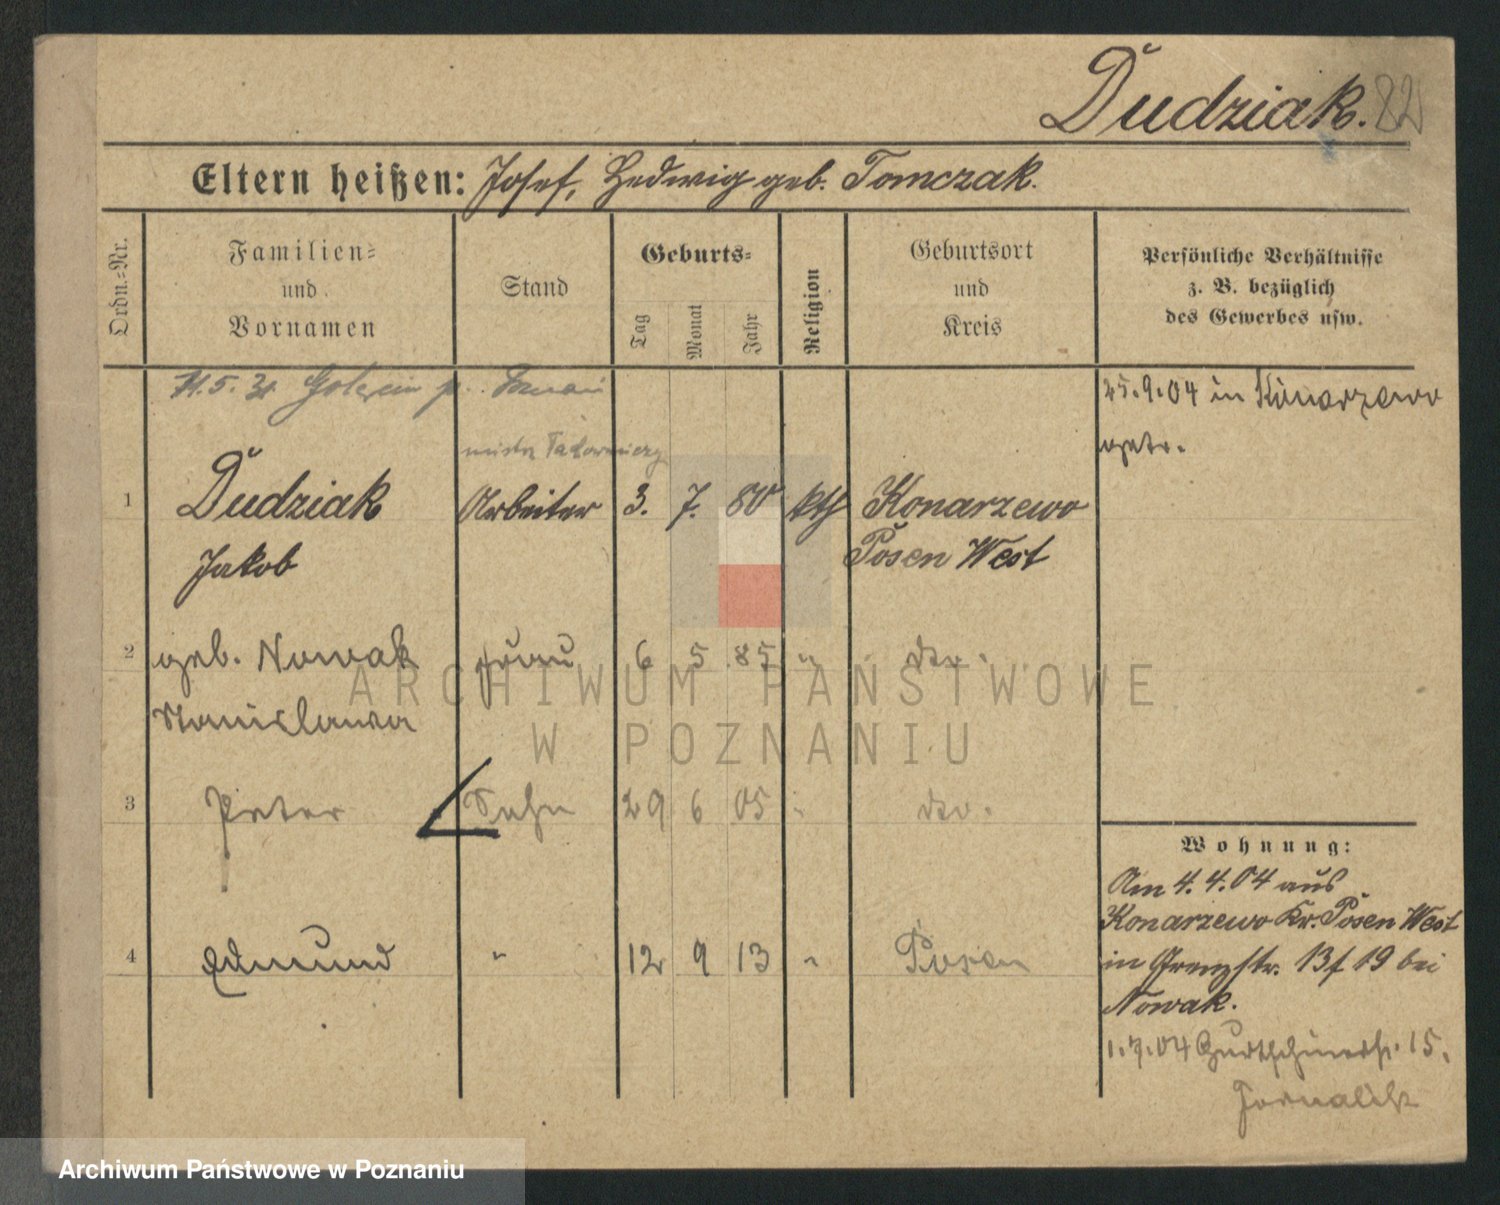 Dudziak. 82
Eltern heißen: Josef, Hedwig geb. Tomczak.
Ordn.-Nr.
Familien-
und
Vornamen
Stand
Geburts-
Tag
Monat
Jahr
Religion
Geburtsort
und
Kreis
Persönliche Verhältnisse
z. B. bezüglich
des Gewerbes usw.
25.9.04 in Konarzewo
getr.
1 Dudziak Arbeiter 3. 7. 80 kth Konarzewo
Jakob Posen West
2 geb. Nowak Frau 6 5 85 " do.
Stanislawa
3 Peter Sohn 29 6 05 " do.
4 Edmund " 12 9 13 " Posen
Wohnung:
Am 4.4.04 aus
Konarzewo Kr. Posen West
in Grenzstr. 13 f 19 bei
Nowak.
1.7.04 Gurtschinerstr. 15.
ARCHIWUM PAŃSTWOWE
W POZNANIU
Archiwum Państwowe w Poznaniu